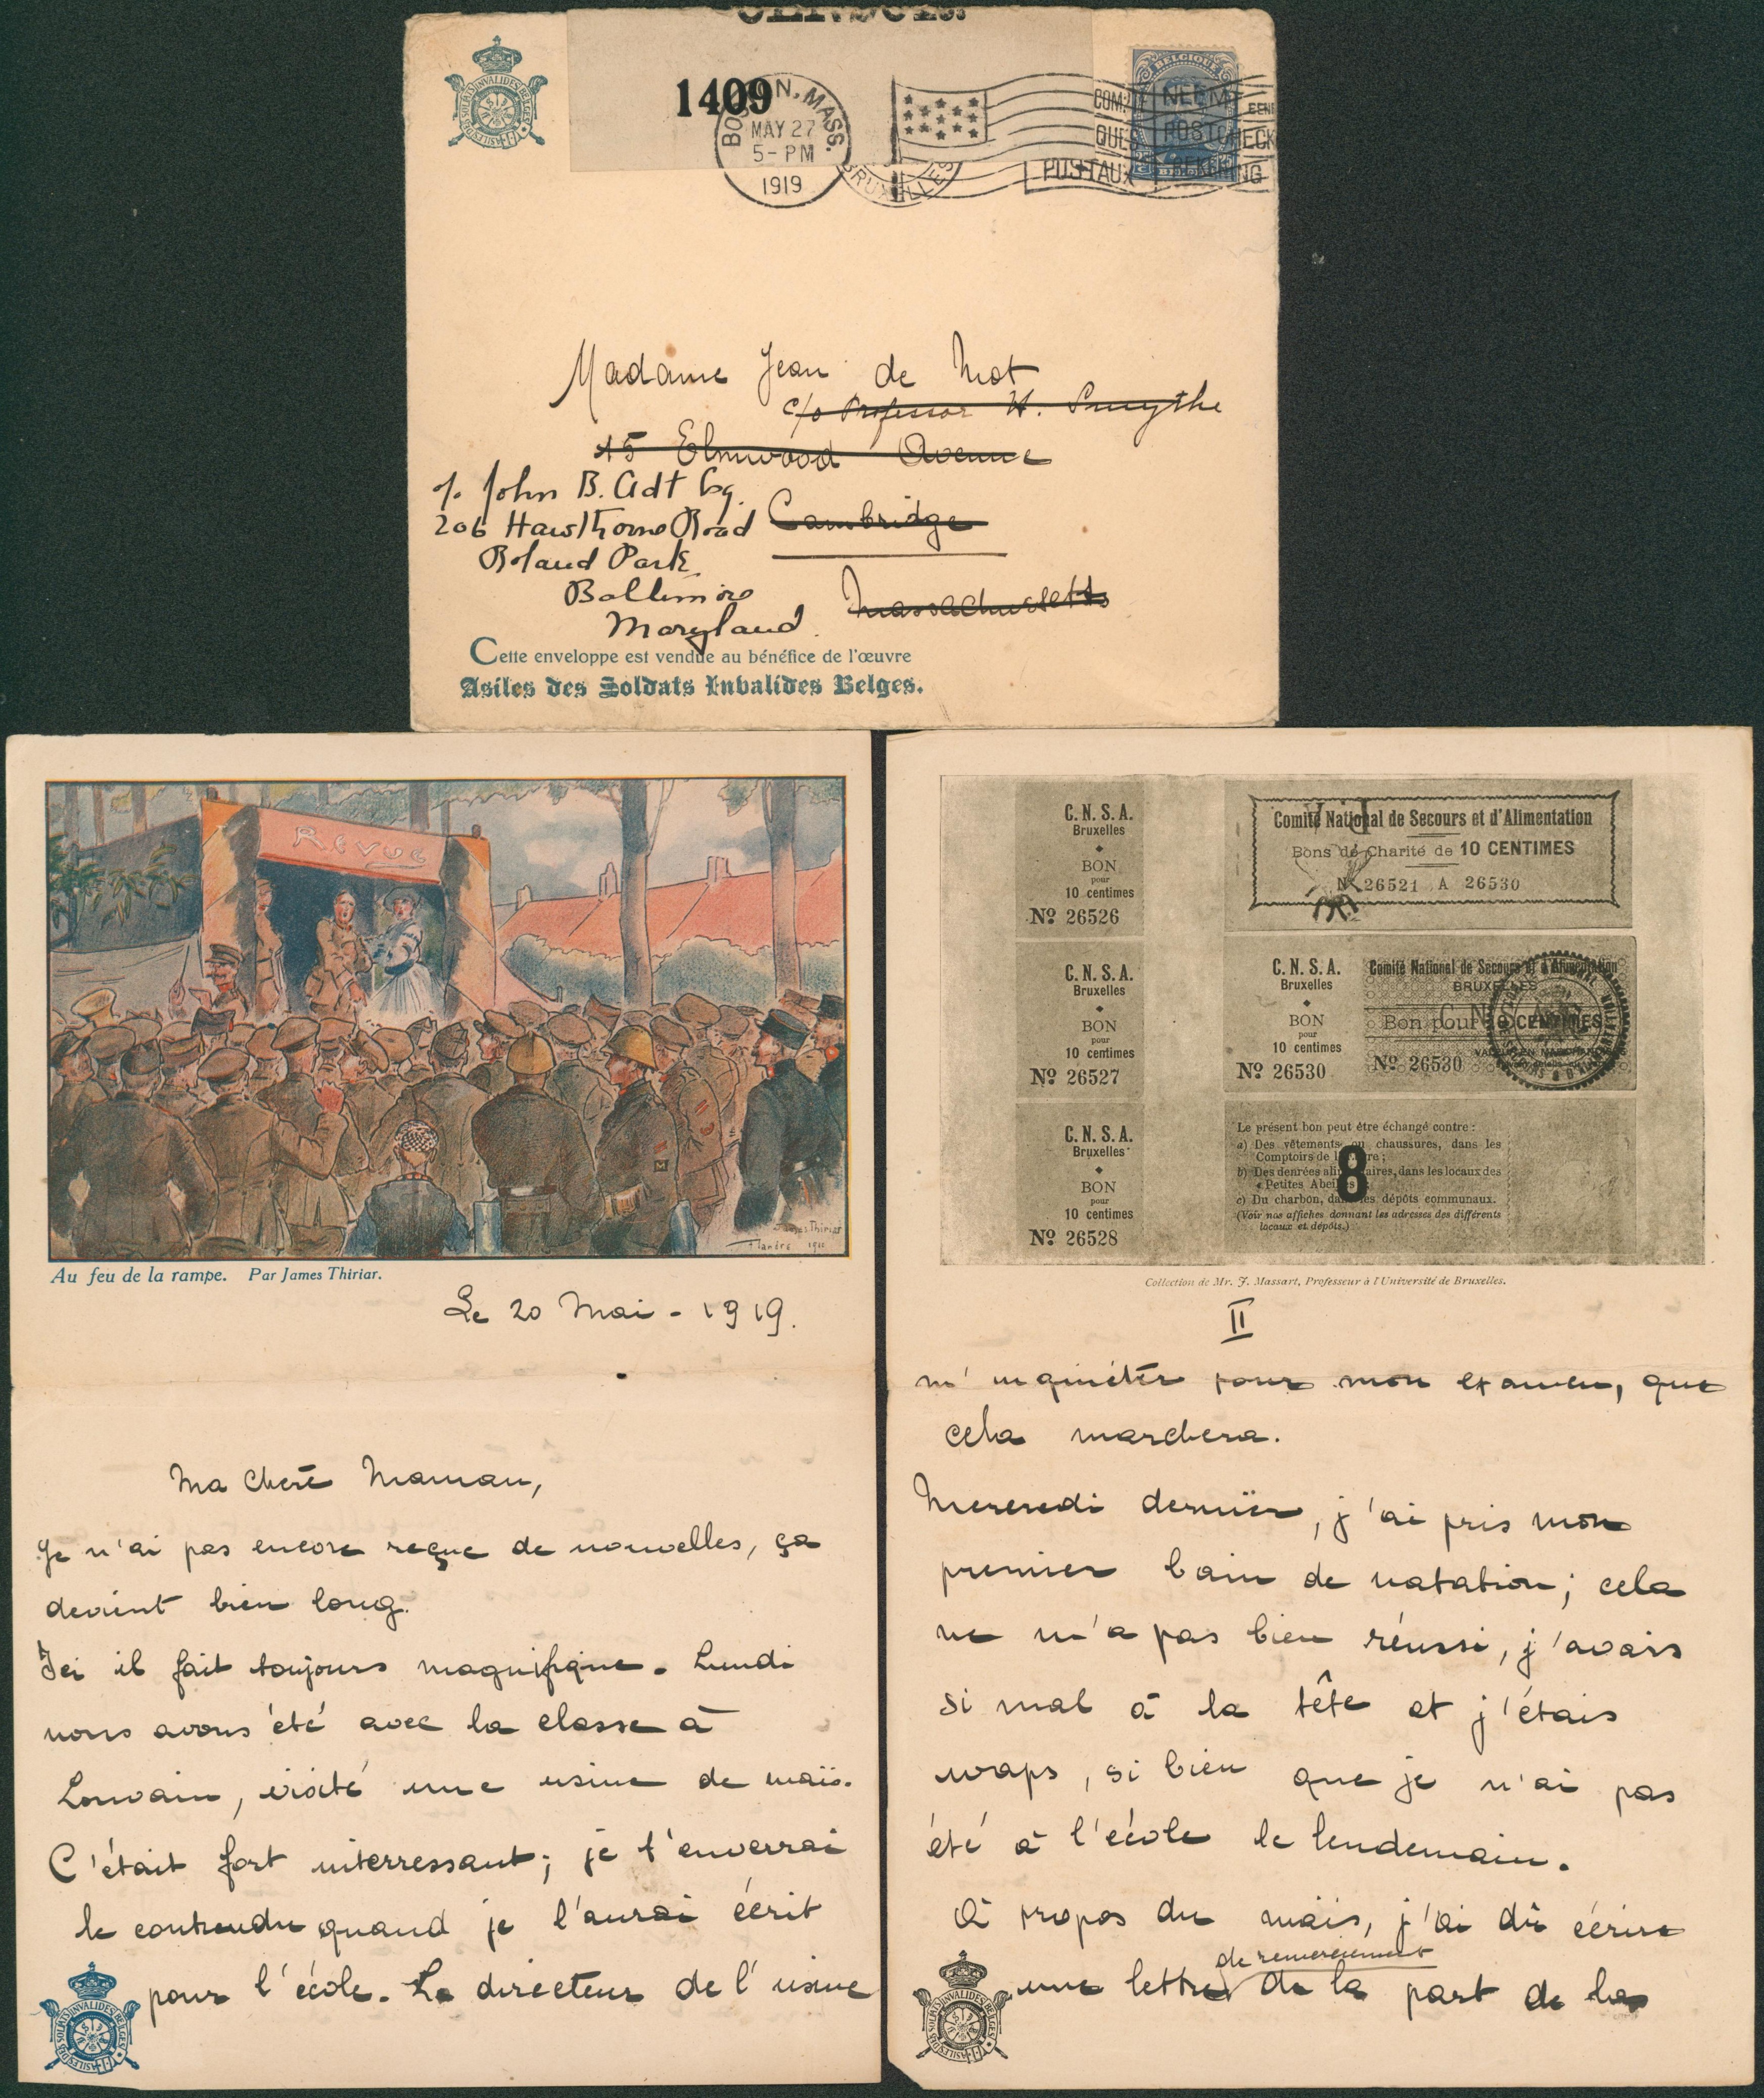 1409
BOSTON, MASS.
MAY 27
5-PM
1919
BRUXELLES
BELGIQUE
NEEM
POSTCHECK
POSTAUX
REKENING
SOLDATS INVALIDES BELGES
Madame Jean de Mot
c/o Professor H. Smythe
15 Elmwood Avenue
Cambridge
Massachusetts
%. John B. Adt Esq.
206 Hawthorne Road
Roland Park
Baltimore
Maryland.
Cette enveloppe est vendue au bénéfice de l'œuvre
Asiles des Soldats Invalides Belges.
REVUE
James Thiriar
Au feu de la rampe. Par James Thiriar.
Le 20 Mai - 1919.
Ma Chère Maman,
Je n'ai pas encore reçue de nouvelles, ça
devient bien long.
Ici il fait toujours magnifique. Lundi
nous avons été avec la classe à
Louvain, visité une usine de maïs.
C'était fort interressant; je t'enverrai
le contrendu quand je l'aurai écrit
pour l'école. Le directeur de l'usine
C. N. S. A.
Bruxelles
BON
pour
10 centimes
Nº 26526
Comité National de Secours et d'Alimentation
Bons de Charité de 10 CENTIMES
Nº 26521 A 26530
C. N. S. A.
Bruxelles
BON
pour
10 centimes
Nº 26527
C. N. S. A.
Bruxelles
BON
pour
10 centimes
Nº 26530
Comité National de Secours et d'Alimentation
BRUXELLES
Bon pour 10 CENTIMES
Nº 26530
C. N. S. A.
Bruxelles
BON
pour
10 centimes
Nº 26528
Le présent bon peut être échangé contre :
a) Des vêtements ou chaussures, dans les
Comptoirs de l'Œuvre ;
b) Des denrées alimentaires, dans les locaux des
« Petites Abeilles »
c) Du charbon, dans les dépôts communaux.
(Voir nos affiches donnant les adresses des différents
locaux et dépôts.)
8
Collection de Mr. J. Massart, Professeur à l'Université de Bruxelles.
II
m'inquiéter pour mon examen, que
cela marchera.
Mercredi dernier, j'ai pris mon
premier bain de natation; cela
ne m'a pas bien réussi, j'avais
si mal à la tête et j'étais
wraps, si bien que je n'ai pas
été à l'école le lendemain.
A propos du maïs, j'ai dû écrire
de remerciement
une lettre de la part de la